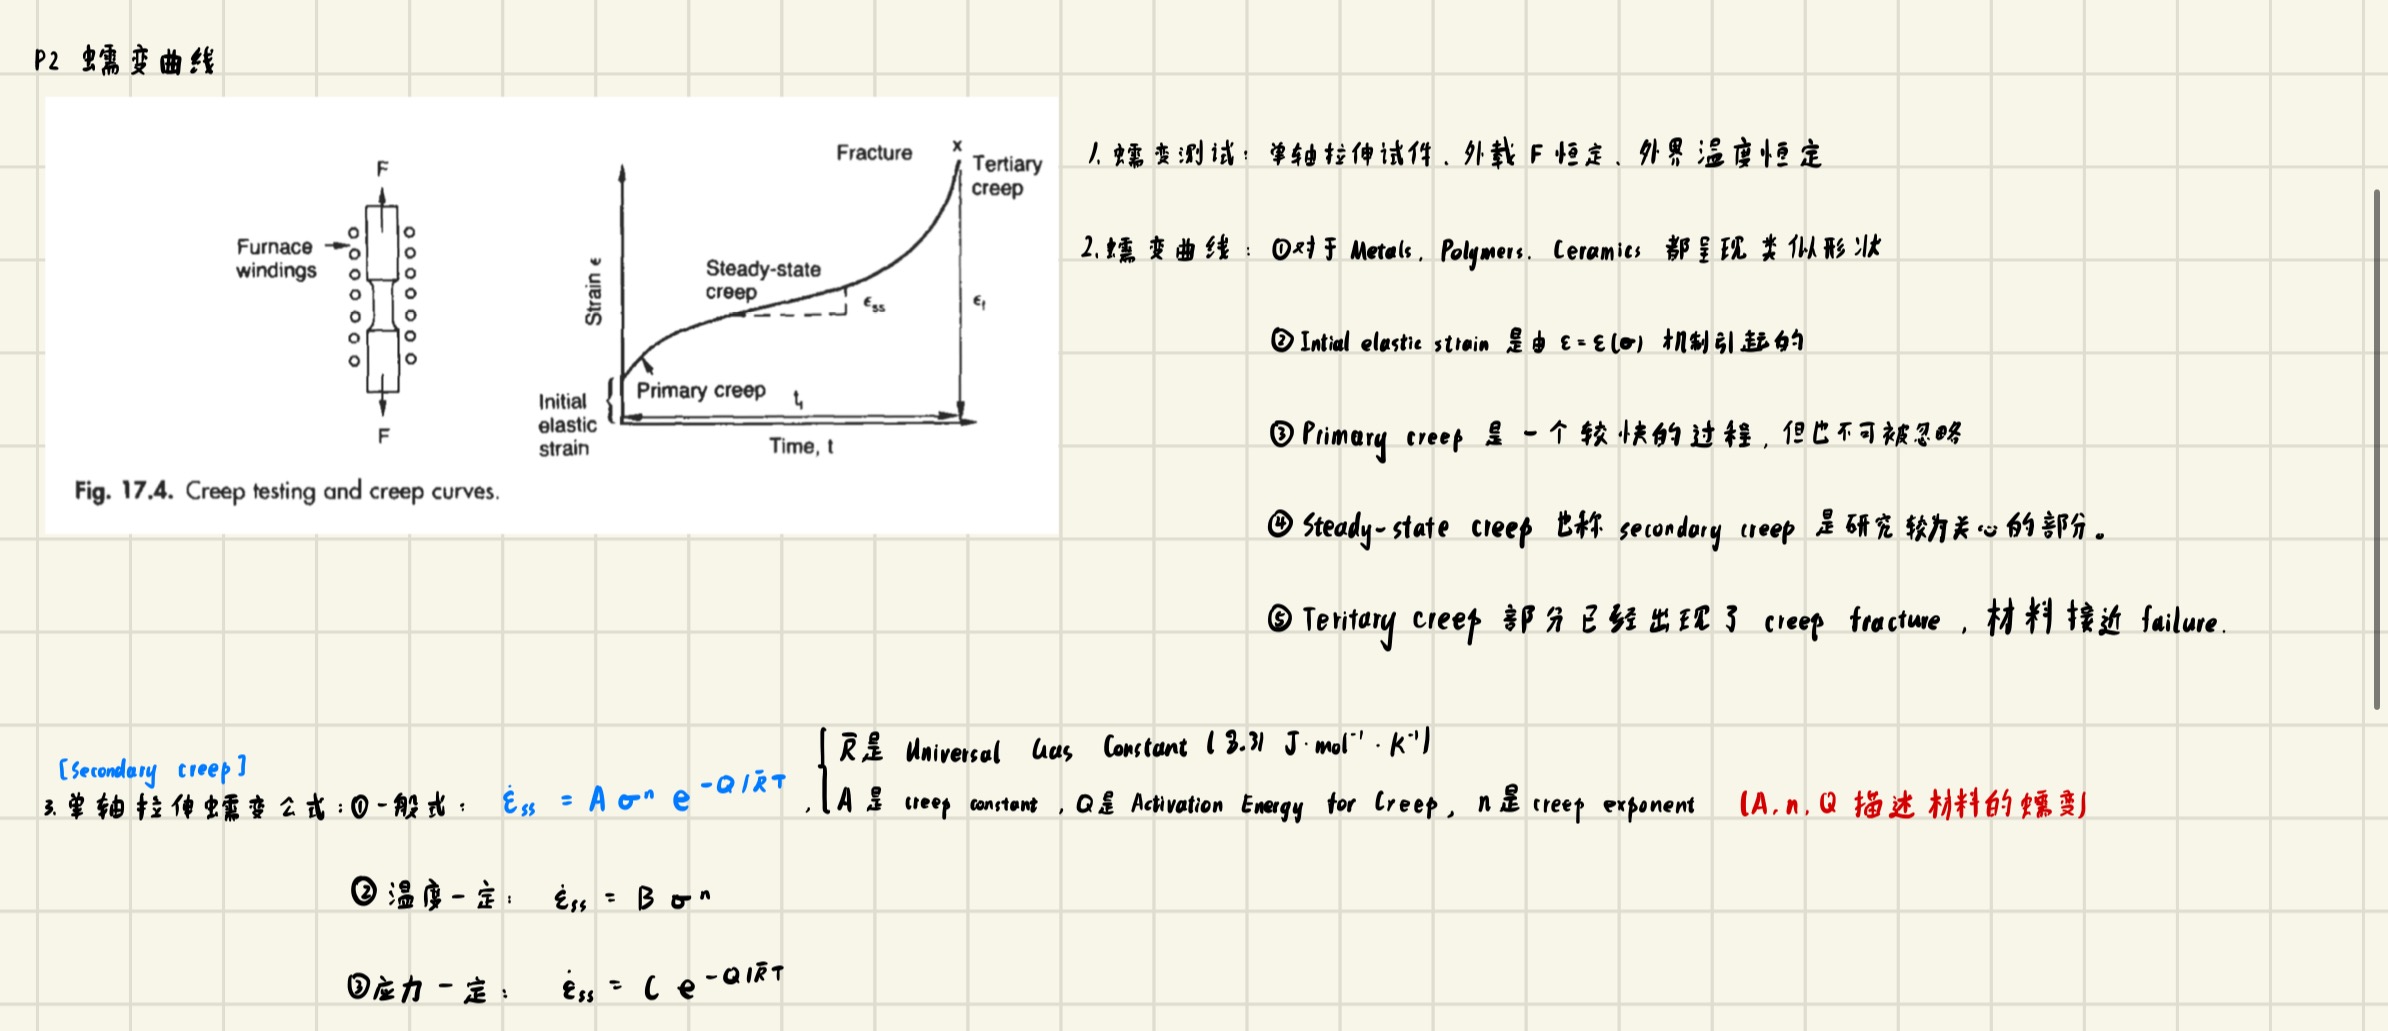 P2 蠕变曲线
Fracture
x
Tertiary
creep
F
Furnace
windings
Steady-state
creep
Strain ϵ
ϵss
ϵf
Primary creep
tf
Initial
elastic
strain
Time, t
F
Fig. 17.4. Creep testing and creep curves.
1. 蠕变测试：单轴拉伸试件、外载 F 恒定、外界温度恒定
2. 蠕变曲线：①对于 Metals, Polymers, Ceramics 都呈现类似形状
② Intial elastic strain 是由 ε = ε(σ) 机制引起的
③ Primary creep 是一个较快的过程，但也不可被忽略
④ Steady-state creep 也称 secondary creep 是研究较为关心的部分。
⑤ Teritary creep 部分已经出现了 creep fracture，材料接近 failure.
[Secondary creep]
3. 单轴拉伸蠕变公式：①一般式：ε̇ss = A σⁿ e^(-Q/R̄T)，
R̄是 Universal Gas Constant (8.31 J·mol⁻¹·K⁻¹)
A 是 creep constant，Q是 Activation Energy for Creep，n是 creep exponent (A, n, Q 描述材料的蠕变)
② 温度一定：ε̇ss = B σⁿ
③应力一定：ε̇ss = C e^(-Q/R̄T)